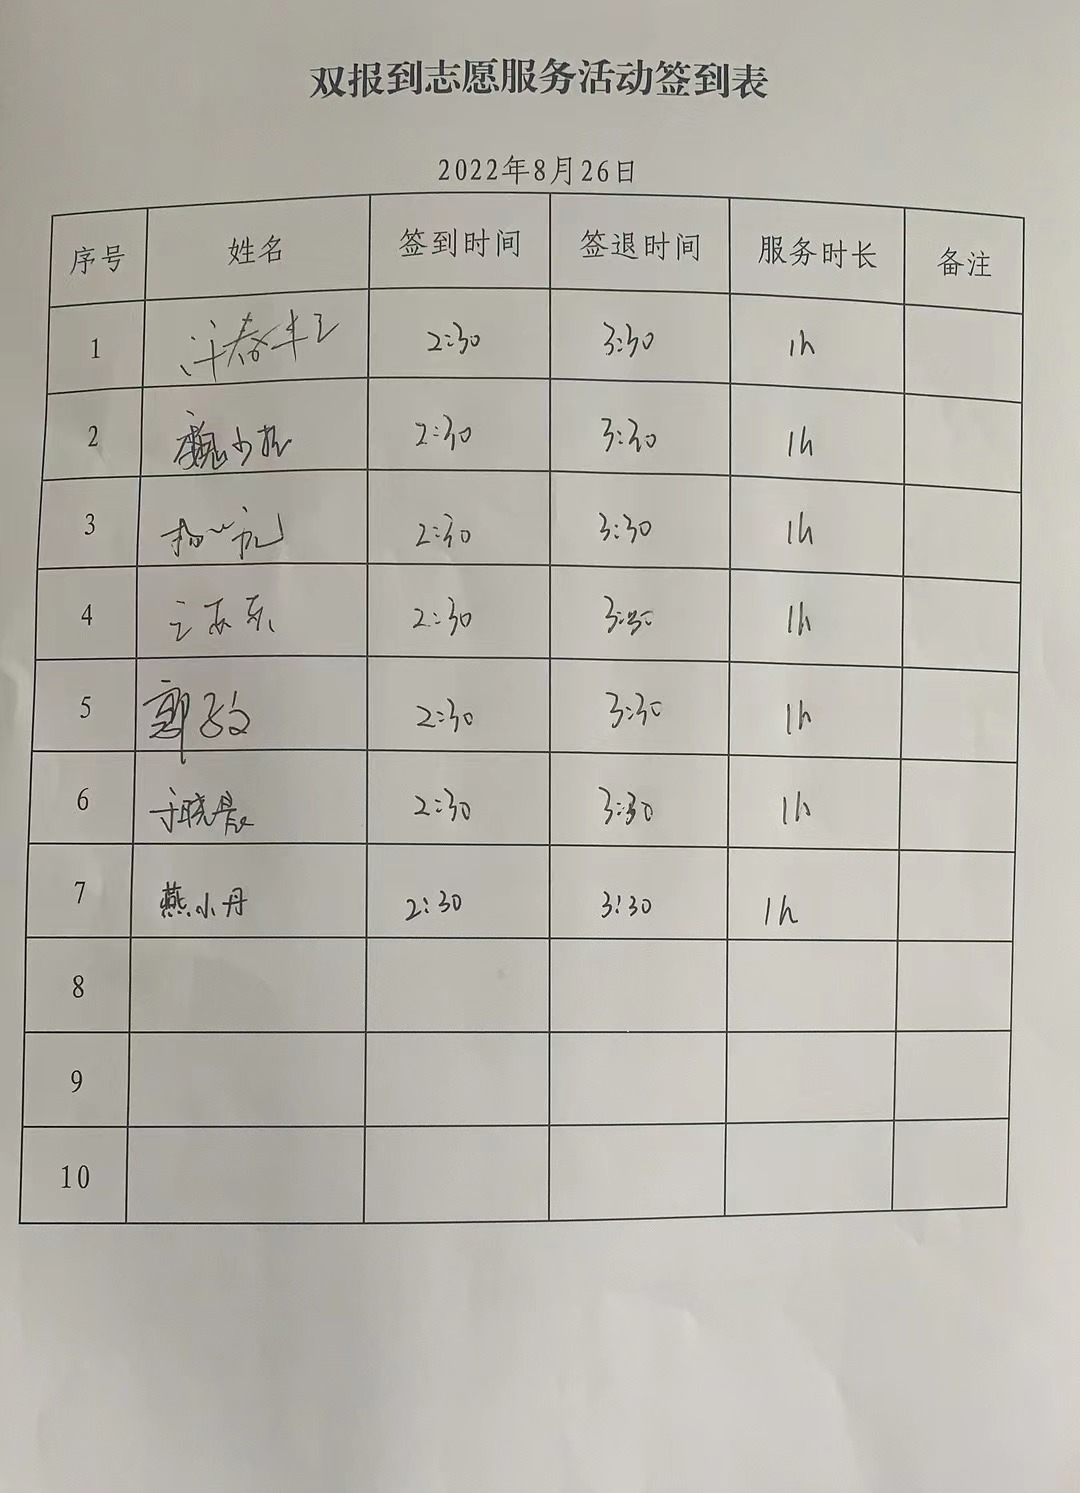 双报到志愿服务活动签到表
2022年8月26日
序号 姓名 签到时间 签退时间 服务时长 备注
1 2:30 3:30 1h
2 魏少 2:30 3:30 1h
3 2:30 3:30 1h
4 2:30 3:30 1h
5 郭 2:30 3:30 1h
6 于晓晨 2:30 3:30 1h
7 燕小丹 2:30 3:30 1h
8
9
10